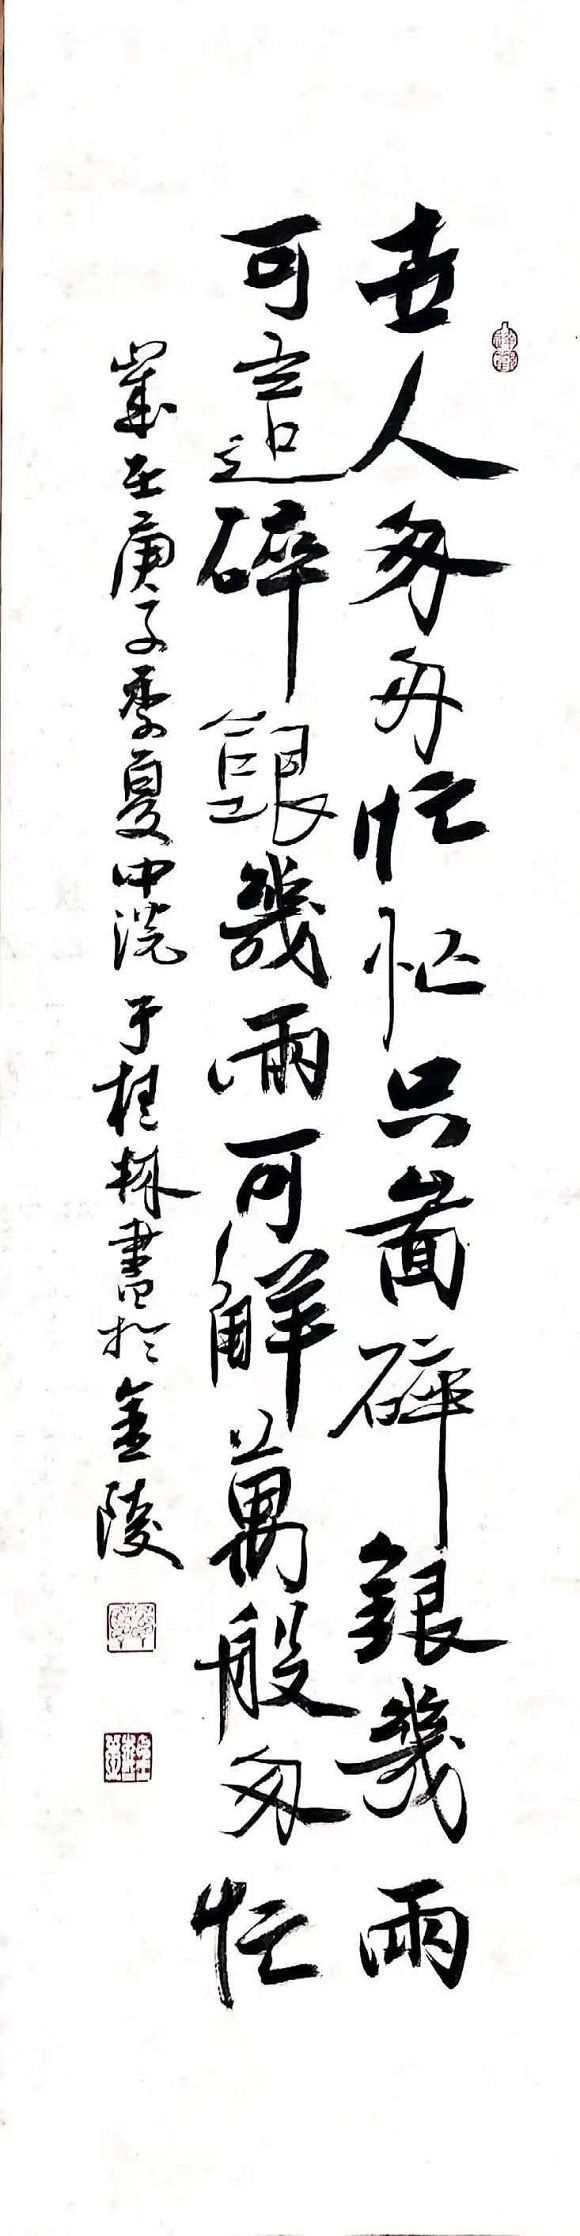 世人匆匆忙忙只圖碎銀幾兩
可這碎銀幾兩可解萬般匆忙
歲在庚子季夏中浣于桂林書於金陵